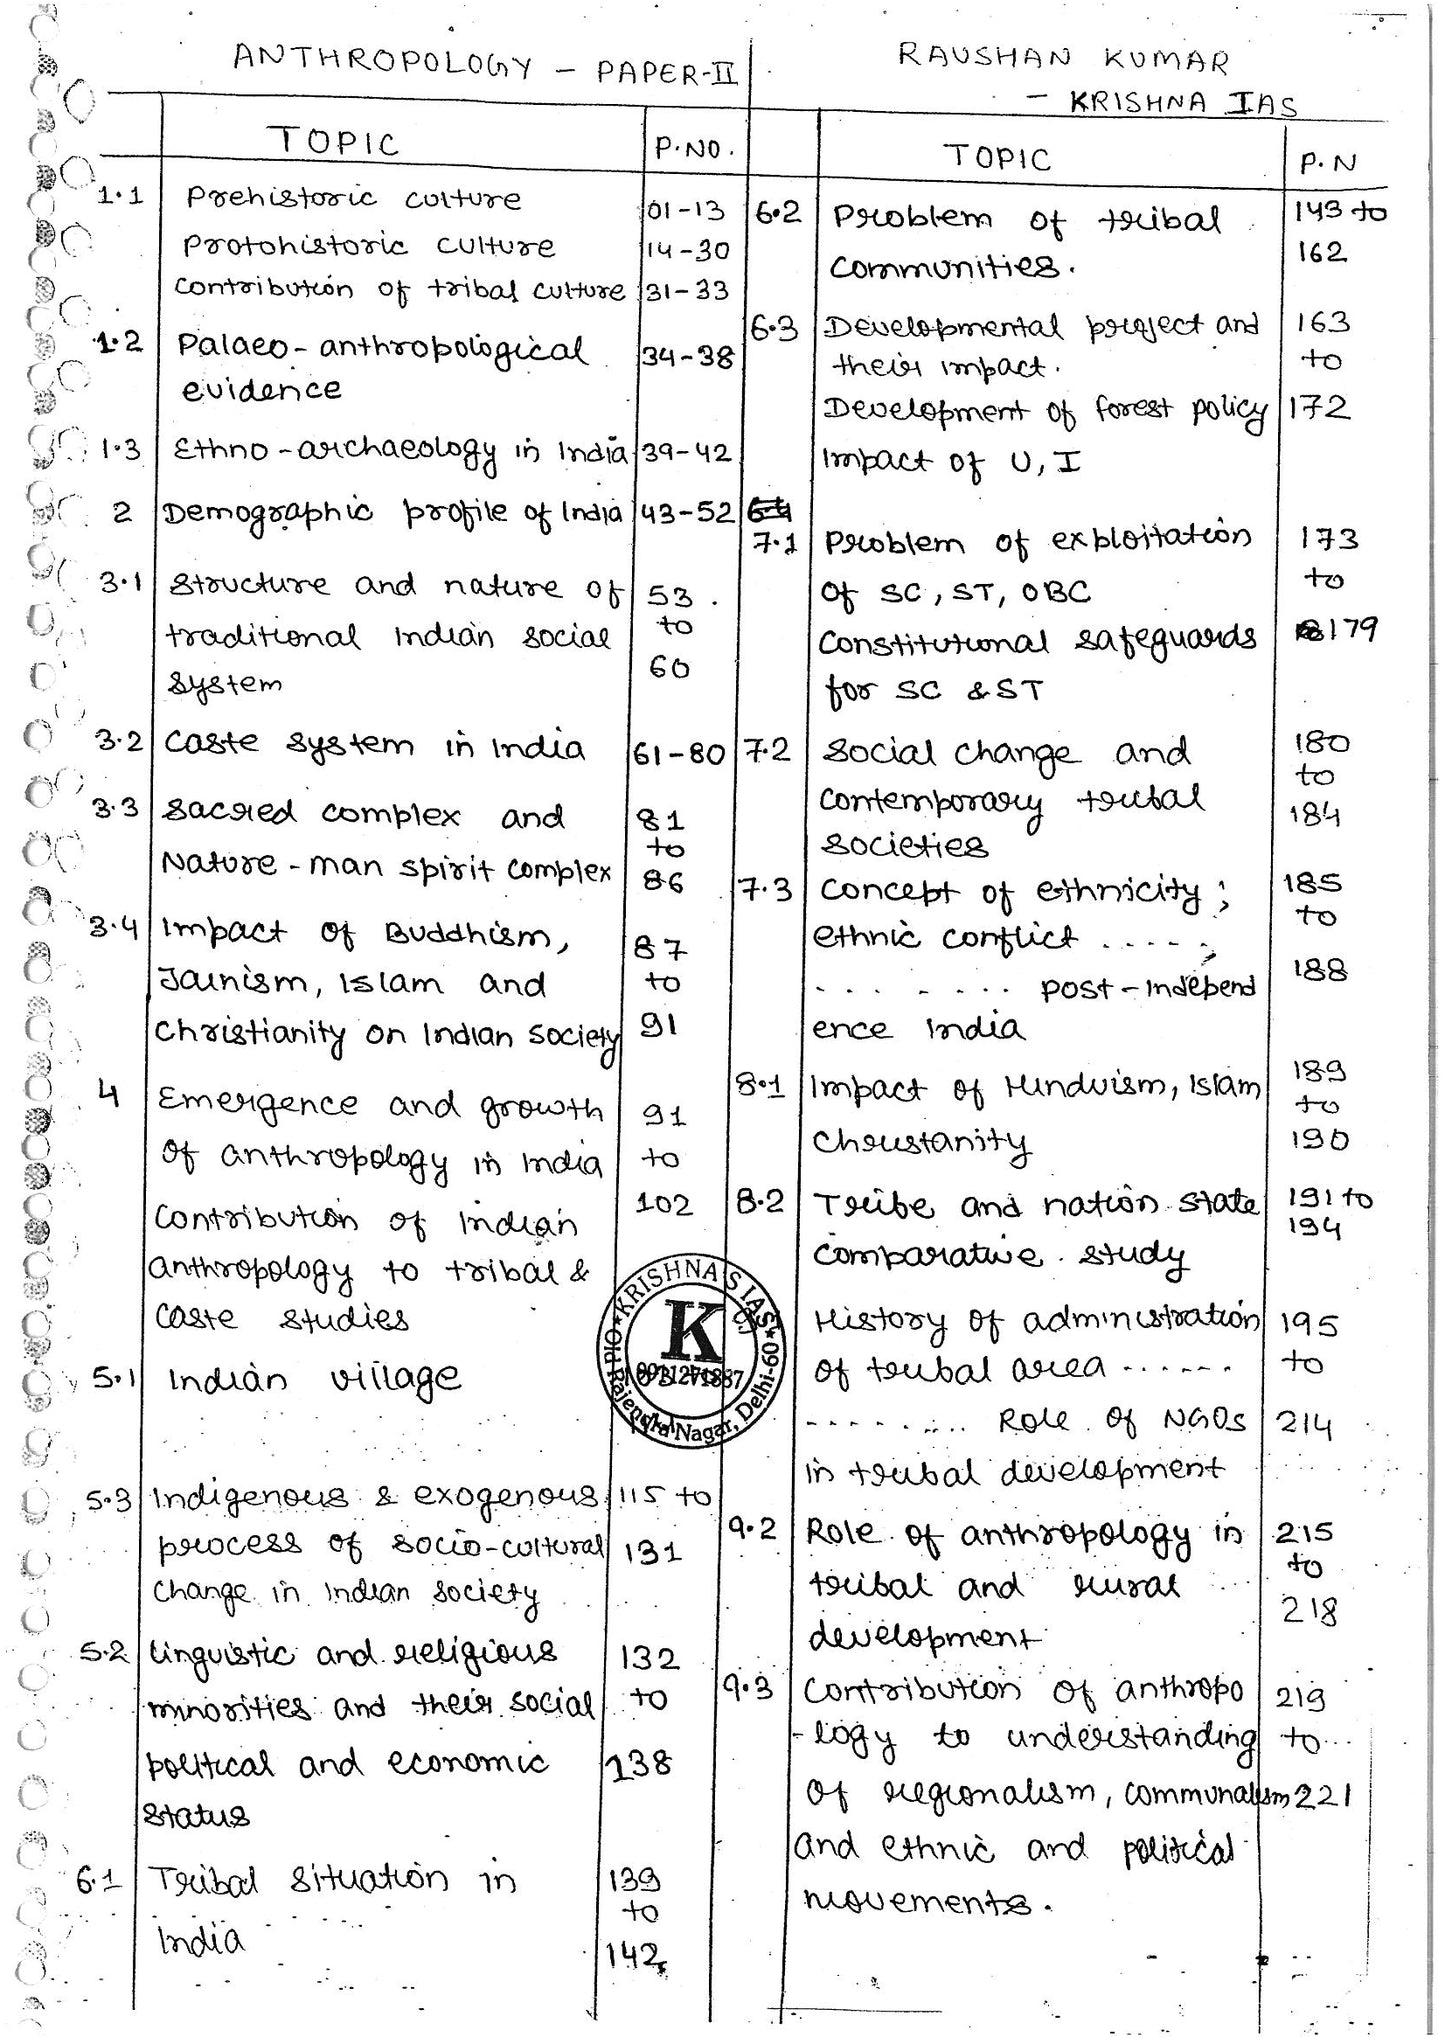 ANTHROPOLOGY - PAPER-II
RAUSHAN KUMAR
- KRISHNA IAS
TOPIC P.NO.
1.1 Prehistoric culture 01-13
Protohistoric culture 14-30
Contribution of tribal culture 31-33
1.2 Palaeo-anthropological 34-38
evidence
1.3 Ethno-archaeology in India 39-42
2 Demographic profile of India 43-52
3.1 Structure and nature of 53
traditional Indian social to
system 60
3.2 Caste system in India 61-80
3.3 Sacred complex and 81
to
Nature-man spirit complex 86
3.4 Impact of Buddhism, 87
Jainism, Islam and to
Christianity on Indian society 91
4 Emergence and growth 91
of anthropology in India to
Contribution of Indian 102
anthropology to tribal &
caste studies
5.1 Indian village
5.3 Indigenous & exogenous 115 to
process of socio-cultural 131
change in Indian society
5.2 linguistic and religious 132
minorities and their social to
political and economic 138
status
6.1 Tribal situation in 139
to
India 142
TOPIC P.N
6.2 Problem of tribal 143 to
communities. 162
6.3 Developmental project and 163
their impact. to
Development of forest policy 172
impact of U, I
7.1 Problem of exploitation 173
of SC, ST, OBC to
Constitutional safeguards 179
for SC & ST
7.2 Social change and 180
to
contemporary tribal 184
societies
7.3 Concept of ethnicity; 185
ethnic conflict ..... to
........ post-independ 188
ence India
8.1 Impact of Hinduism, Islam 189
to
Chrustanity 190
8.2 Tribe and nation state 191 to
194
comparative study
History of administration 195
of tribal area ...... to
........ Role of NGOs 214
in tribal development
9.2 Role of anthropology in 215
to
tribal and rural 218
development
9.3 Contribution of anthropo 219
-logy to understanding to
of regionalism, communalism 221
and ethnic and political
movements.
KRISHNA'S IAS
K
Rajendra Nagar, Delhi-60